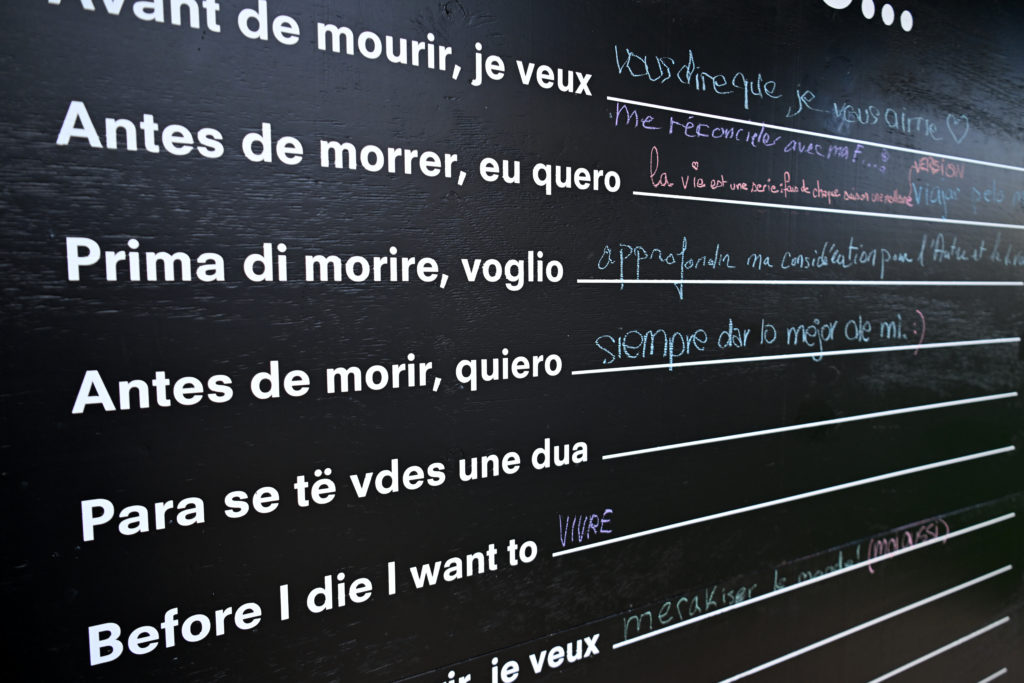 Avant de mourir, je veux vous dire que je vous aime ♡
me réconcilier avec ma F...
Antes de morrer, eu quero la vie est une serie : fais de chaque saison une meilleure VERSION
Viajar pelo
Prima di morire, voglio approfondir ma considération pour l'Autre et la
Antes de morir, quiero siempre dar lo mejor de mi. :)
Para se të vdes une dua
Before I die I want to VIVRE
je veux merakiser le monde! (moi aussi)